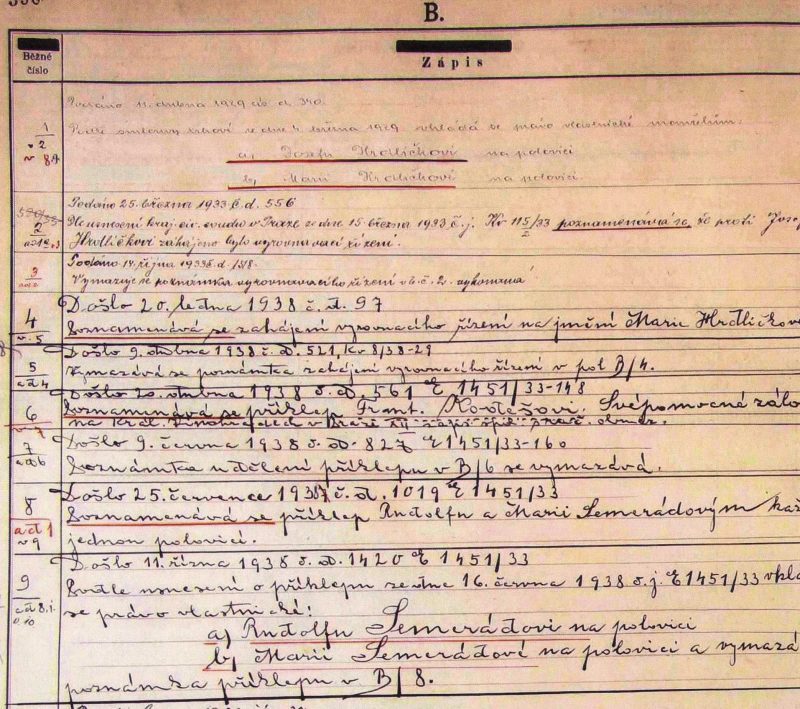 B.
Běžné
číslo
Zápis
Podáno 11. dubna 1929 čís. d. 340.
1
Podle smlouvy trhové ze dne 4. března 1929 vkládá se právo vlastnické manželům:
v 2
v 8,9
a) Josefu Hrdličkovi na polovici
b) Marii Hrdličkové na polovici
Podáno 25. března 1933 č. d. 556
2
Dle usnesení kraj. civ. soudu v Praze ze dne 15. března 1933 č. j. Kv 115/33 poznamenává se, že proti Josefu
Hrdličkovi zahájeno bylo vyrovnávací řízení.
3
Podáno 14. října 1933 č. d.
Vymazuje se poznámka vyrovnávacího řízení ob. č. 2. vykonaná
Došlo 20. ledna 1938 č. d. 97
4
Poznamenává se zahájení vyrovnacího řízení na jmění Marie Hrdličkové
v. 5
Došlo 9. dubna 1938 č. d. 521, Kv 8/38-29
5
Vymazává se poznámka zahájení vyrovnacího řízení v pol B/4.
ad 4
Došlo 20. dubna 1938 č. d. 561 E 1451/33-148
6
Poznamenává se příklep Frant. Svépomocná zálo
na Král. Vinohradech v Praze XII zaps. spol. praž. obcho.
7
Došlo 9. června 1938 č. d. 827 E 1451/33-160
ad 6
Poznámka udělení příklepu v B/6 se vymazává.
8
Došlo 25. července 1938 č. d. 1019 E 1451/33
ad 1
Poznamenává se příklep Rudolfu a Marii Semerádovým kaž
v 9
jednou polovicí.
Došlo 11. října 1938 č. d. 1420 E 1451/33
9
Podle usnesení o příklepu ze dne 16. června 1938 č. j. E 1451/33 vklá
ad 8. i.
se právo vlastnické:
v 10
a) Rudolfu Semerádovi na polovici
b) Marii Semerádové na polovici a vymazá
poznámka příklepu v B/8.